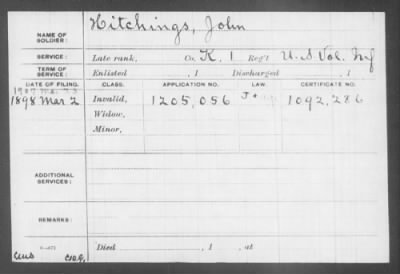 NAME OF SOLDIER: Hitchings, John
SERVICE: Late rank, Co. K. 1 Reg't U. S Vol. Inf
TERM OF SERVICE: Enlisted , 1 Discharged , 1
DATE OF FILING. CLASS. APPLICATION NO. LAW. CERTIFICATE NO.
1898 Mar 2 Invalid, 1205,056 1092,286
Widow,
Minor,
ADDITIONAL SERVICES:
REMARKS:
Died , 1 , at